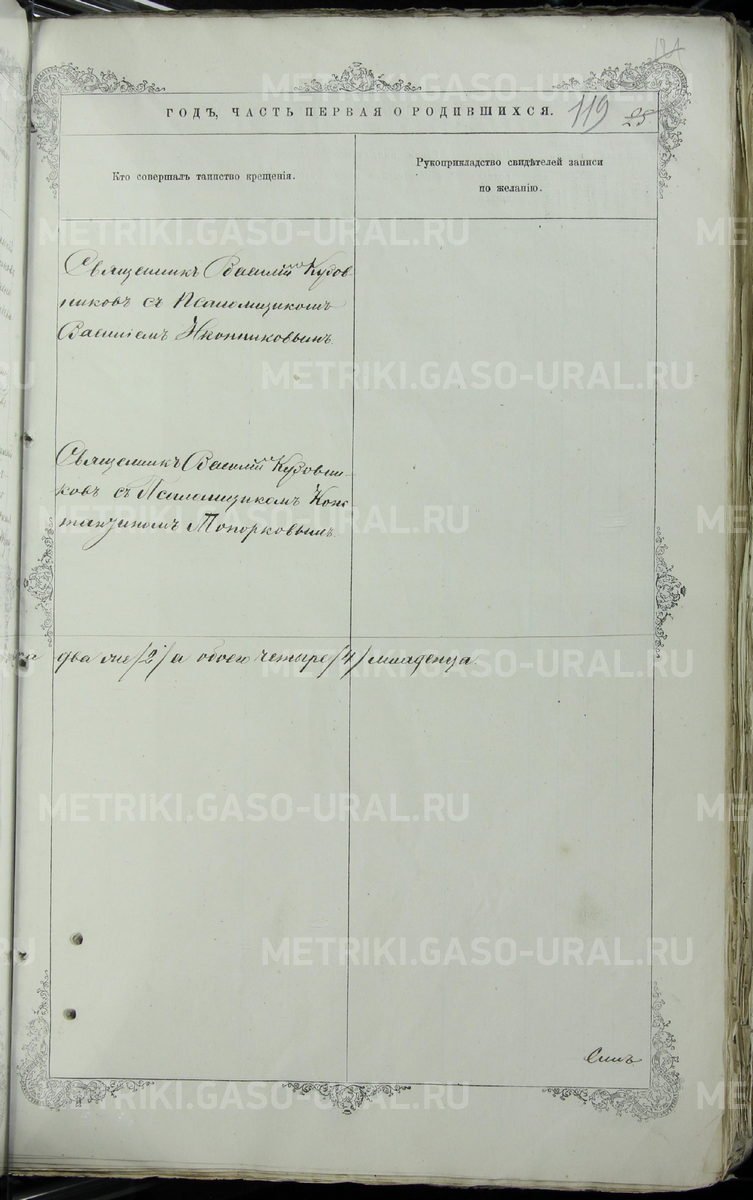 ГОДЪ, ЧАСТЬ ПЕРВАЯ О РОДИВШИХСЯ.
119
25
Кто совершалъ таинство крещенія.
Рукоприкладство свидѣтелей записи
по желанію.
Священникъ Василій Кузов
никовъ съ Псаломщикомъ
Василіемъ Иконниковымъ
Священникъ Василій Кузовни
ковъ съ Псаломщикомъ Конс
тантиномъ Топорковымъ
два /2/ а обоего четыре /4/ младенца
METRIKI.GASO-URAL.RU